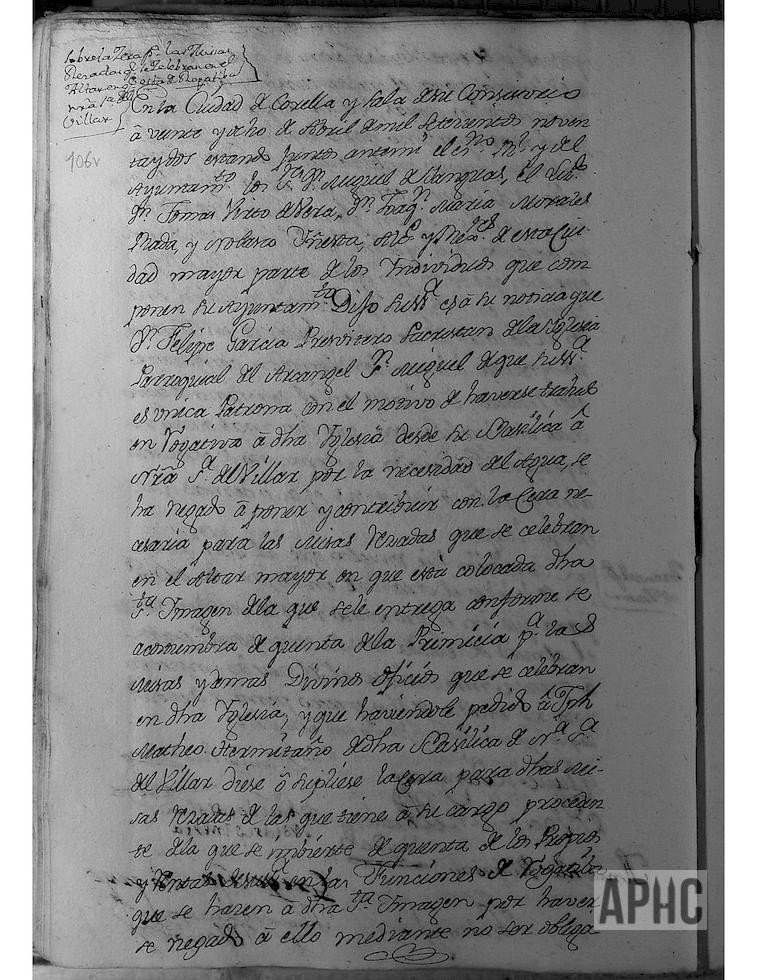 sobre la Zera p.ª las Missas
Rezadas q.e se Zelebran en el
Altar en q.e está de Rogativa
nrã s.ra del
Villar
106v
En la Ciudad de Corella y Sala de su Consistorio
â veinte y ocho de Abril de mil setecientos noven
ta y dos estando juntos ante mi el es.no R.l y del
Ayuntam.to los S.res D.n Miguel de Sanguas, el Lizdo.
D.n Tomas Virto de Vera, D.n Joaq.n Maria Morales
Rada, y Nolasco Alc.e y Rex.res de esta Ciu
dad mayor parte de los Yndividuos que com
ponen su Ayuntam.to Dijo su Sª. es â su noticia que
D.n Felipe Garcia Presvitero Sacristan de la Yglesia
Parroquial del Arcangel S.n Miguel de que su Sª.
es unica Patrona con el motivo de haverse trahido
en Rogativa â dha Yglesia desde su Basilica â
Nrã S.ª del Villar por la necesidad del Agua, se
ha negado â poner y contribuir con la Cera ne-
cesaria para las Misas Rezadas que se celebran
en el Altar mayor en que está colocada dha
S.ta Ymagen de la que se le entrega conforme se
acostumbra de quenta de la Primicia p.ª las
Misas y demas Divinos oficios que se celebran
en dha Yglesia, y que haviendole pedido â Jph
Matheo Hermitaño de dha Basilica de N.ª S.ª
del Villar diese ô supliese la Cera para dhas Mi-
sas Rezadas de las que tiene â su cargo proceden
te de la que se imbierte de quenta de los Propios
y Rentas de su Sª. en las Funciones de Rogativa
que se hazen â dha S.ta Ymagen por haver
se negado â ello mediante no ser obliga-
APHC